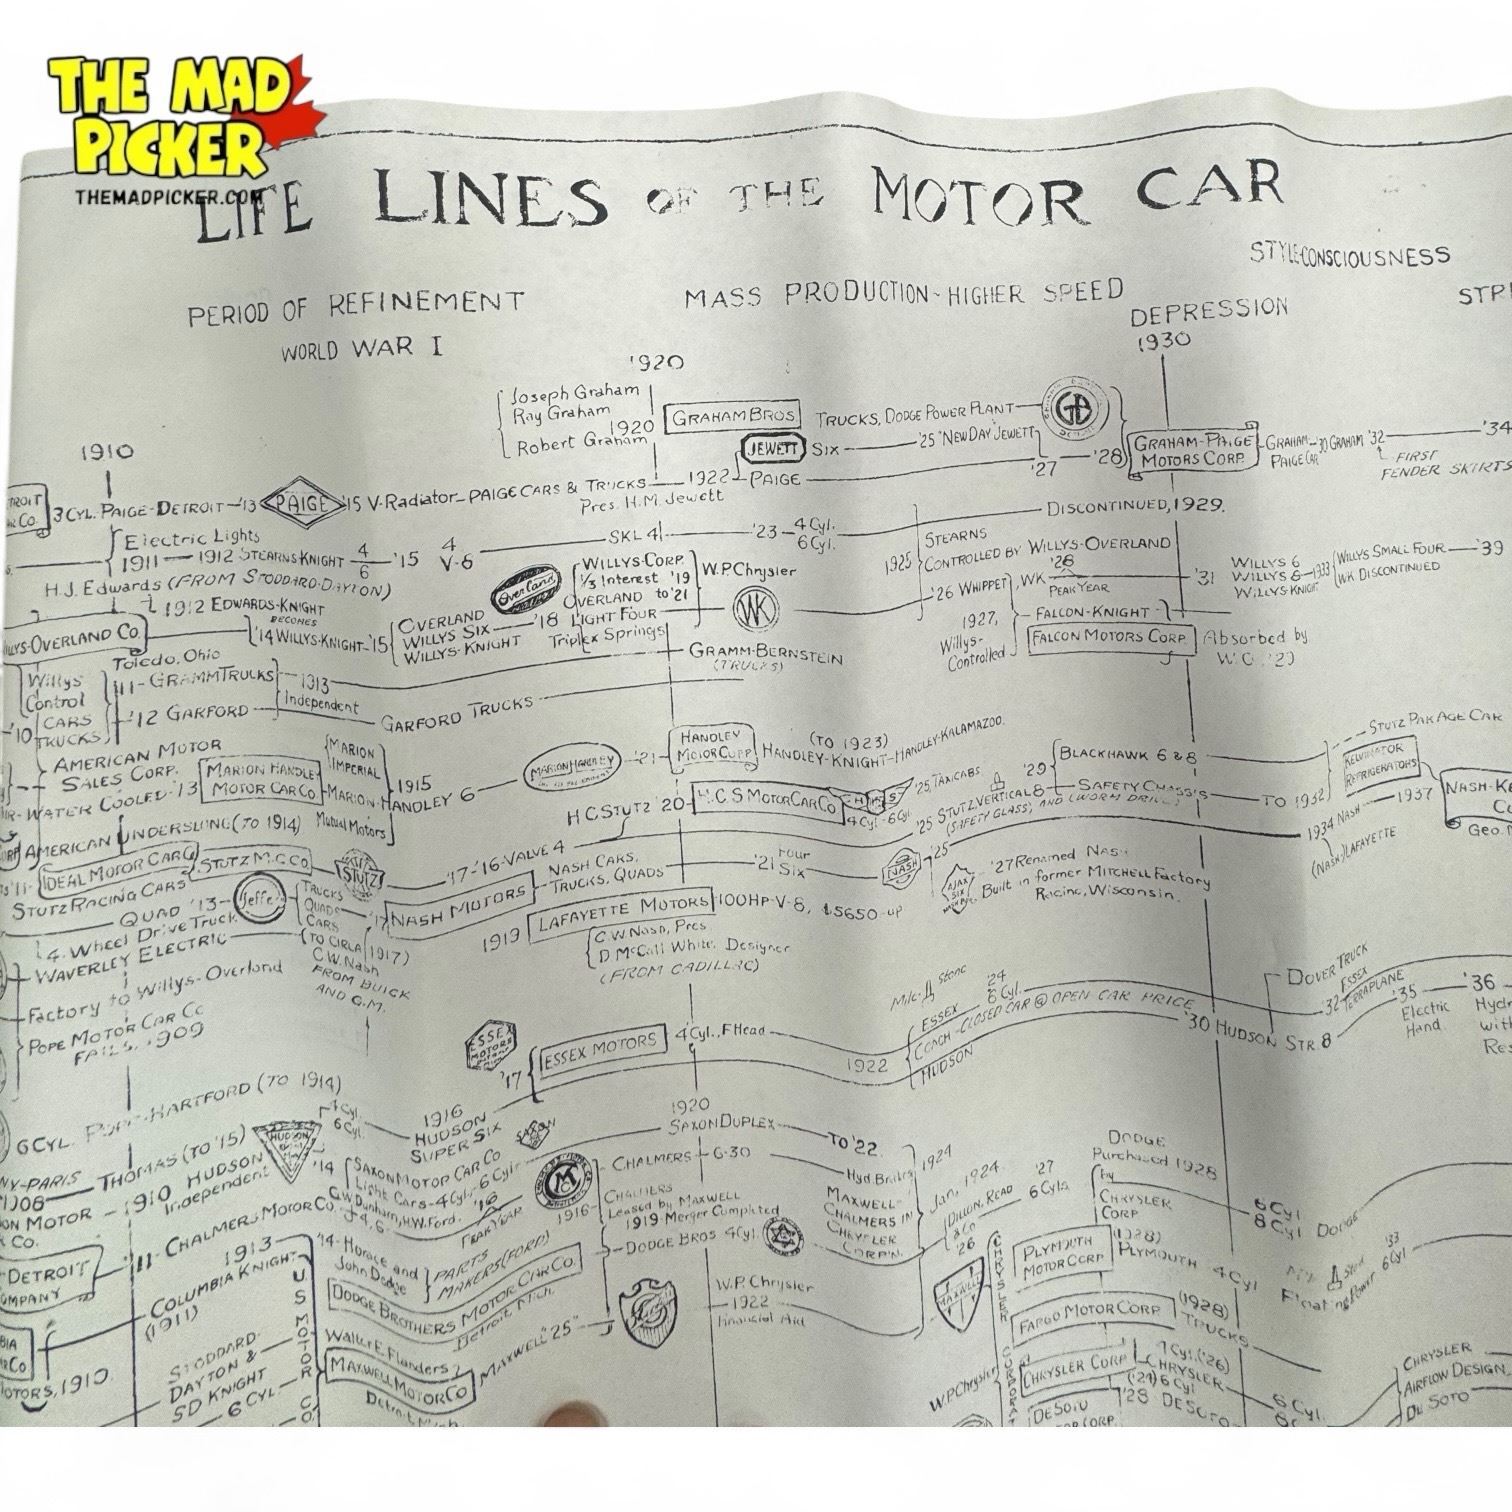 THE MAD
PICKER
THEMADPICKER.COM
LIFE LINES OF THE MOTOR CAR
STYLE-CONSCIOUSNESS
PERIOD OF REFINEMENT
MASS PRODUCTION-HIGHER SPEED
WORLD WAR I
DEPRESSION
1930
'920
1910
Joseph Graham
Ray Graham
1920
Robert Graham
GRAHAM BROS.
TRUCKS, DODGE POWER PLANT
GB
JEWETT SIX
'25 "NEW DAY" JEWETT
'27
'28
GRAHAM-PAIGE
MOTORS CORP.
GRAHAM-
PAIGE CAR
'30 GRAHAM '32
'34
FIRST
FENDER SKIRTS
3 CYL. PAIGE-DETROIT '13
PAIGE
'15 V-Radiator-PAIGE CARS & TRUCKS
1922 PAIGE
Pres. H.M. Jewett
Electric Lights
1911 1912 STEARNS KNIGHT 4/6 '15 4 V-8
SKL 4
'23 4 Cyl.
6 Cyl.
DISCONTINUED, 1929.
1925
STEARNS
CONTROLLED BY WILLYS-OVERLAND
H.J. Edwards (FROM STODDARD-DAYTON)
1912 EDWARDS-KNIGHT
BECOMES
'14 WILLYS-KNIGHT '15
WILLYS-OVERLAND CO.
Toledo, Ohio
OVERLAND
WILLYS SIX
WILLYS-KNIGHT
Overland
'18
WILLYS-CORP.
1/3 Interest '19
OVERLAND to '21
LIGHT FOUR
Triplex Springs
W.P. Chrysler
WK
'26 WHIPPET, WK
'28
PEAK YEAR
'31
WILLYS 6
WILLYS 8
WILLYS KNIGHT
1933
WILLYS SMALL FOUR '39
WK DISCONTINUED
1927,
Willys-
Controlled
FALCON-KNIGHT
FALCON MOTORS CORP.
Absorbed by
W.O. '29
Willys
Control
'11-GRAMM TRUCKS
1913
Independent
GRAMM-BERNSTEIN
(TRUCKS)
'10
CARS
TRUCKS
'12 GARFORD
GARFORD TRUCKS
AMERICAN MOTOR
SALES CORP.
MARION
IMPERIAL
1915
MARION HANDLEY
MOTOR CAR CO
MARION-HANDLEY 6
MARION HANDLEY
'21
HANDLEY
MOTOR CORP
(TO 1923)
HANDLEY-KNIGHT-HANDLEY-KALAMAZOO.
AIR-WATER COOLED '13
Mutual Motors
AMERICAN UNDERSLUNG (TO 1914)
H C STUTZ '20
H.C.S MOTOR CAR CO
4 Cyl-6 Cyl
'25, TAXICABS
'25 STUTZ VERTICAL 8
(SAFETY GLASS, AND (WORM DRIVE)
'29
BLACKHAWK 6 & 8
SAFETY CHASSIS
TO 1932
STUTZ PAK AGE CAR
KELVINATOR
REFRIGERATORS
1937
1934 NASH
(NASH) LAFAYETTE
IDEAL MOTOR CAR CO
STUTZ M.C. CO.
STUTZ
'17-'16-VALVE 4
STUTZ RACING CARS
QUAD '13
Jeffery
TRUCKS
QUADS
CARS
(TO CIRCA 1917)
'17
NASH MOTORS
NASH CARS,
TRUCKS, QUADS
'21 Four
Six
NASH
'25
AJAX
SIX
'27 Renamed NASH
Built in former MITCHELL Factory
Racine, Wisconsin.
1919
LAFAYETTE MOTORS
100HP-V-8, $5650-UP
C.W. Nash, Pres
D. McCall White, Designer
(FROM CADILLAC)
4-Wheel Drive Truck
WAVERLEY ELECTRIC
C.W. Nash
FROM BUICK
AND G.M.
Factory to Willys-Overland
POPE MOTOR CAR Co
FAILS, 1909
ESSEX
MOTORS
'17
ESSEX MOTORS
4 Cyl., F Head
1922
ESSEX
'24
6 Cyl.
COACH-CLOSED CAR @ OPEN CAR PRICE
HUDSON
'30 HUDSON STR 8
DOVER TRUCK
ESSEX
'32 TERRAPLANE
'35
Electric
Hand.
'36
6 CYL. POPE-HARTFORD (TO 1914)
THOMAS (TO '15)
1908
1910 HUDSON
Independent
HUDSON
4 Cyl.
6 Cyl.
1916
HUDSON
SUPER SIX
'14
SAXON MOTOR CAR CO
Light Cars-4 Cyl-6 Cyl
'16
PEAK YEAR
SAXON
1920
SAXON DUPLEX
TO '22.
'11-CHALMERS MOTOR CO.
CHALMERS 6-30
Hyd. Brakes
1924
1916
CHALMERS
Leased by MAXWELL
1919 Merger Completed
MAXWELL-
CHALMERS IN
CHRYSLER
CORP'N.
Jan, 1924.
(DILLON, READ
'27
6 Cyls
DODGE BROS 4 Cyl.
DODGE
Purchased 1928
by
CHRYSLER
CORP
6 Cyl
8 Cyl
DODGE
'33
6 Cyl
Floating Power
1913
COLUMBIA KNIGHT
(1911)
'14- Horace and
John Dodge
PARTS
MAKERS (FORD)
DODGE BROTHERS MOTOR CAR CO.
Detroit, Mich.
U.S. MOTOR CO.
Walter E. Flanders
MAXWELL MOTOR CO
MAXWELL "25"
W.P. Chrysler
1922
Financial Aid
MAXWELL
PLYMOUTH
MOTOR CORP
(1928)
PLYMOUTH 4 Cyl
FARGO MOTOR CORP.
(1928)
TRUCKS
CHRYSLER CORP
CHRYSLER
W.P. Chrysler
DE SOTO
'28 DE SOTO
CHRYSLER
AIRFLOW DESIGN
DE SOTO
STODDARD-
DAYTON &
SD KNIGHT
6 CYL
MOTORS, 1910.